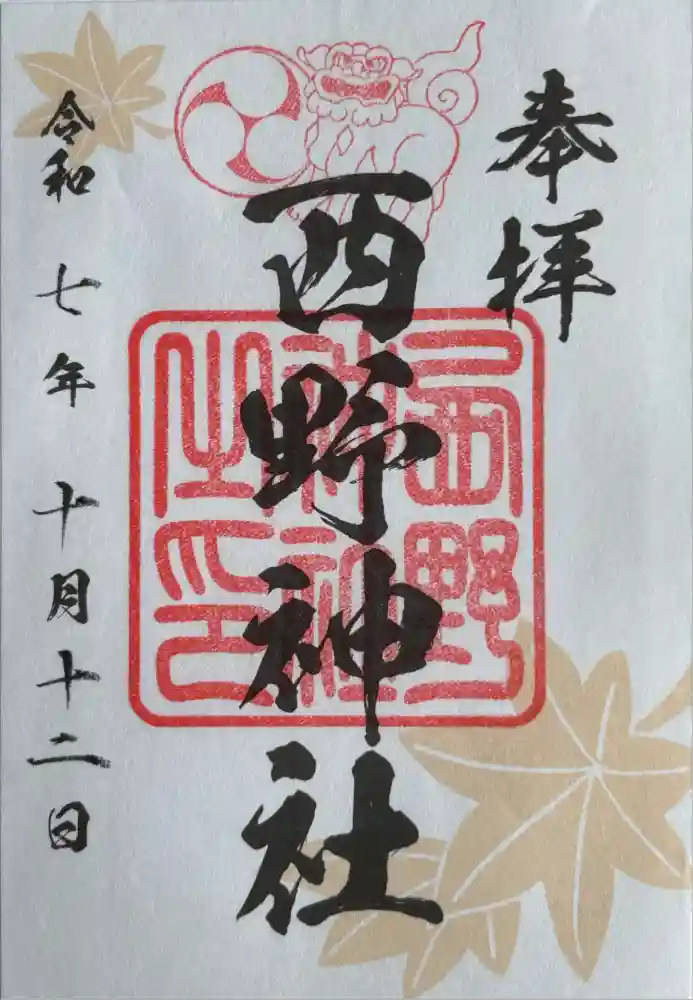 奉拝
西野神社
西野神社之印
令和七年十月十二日